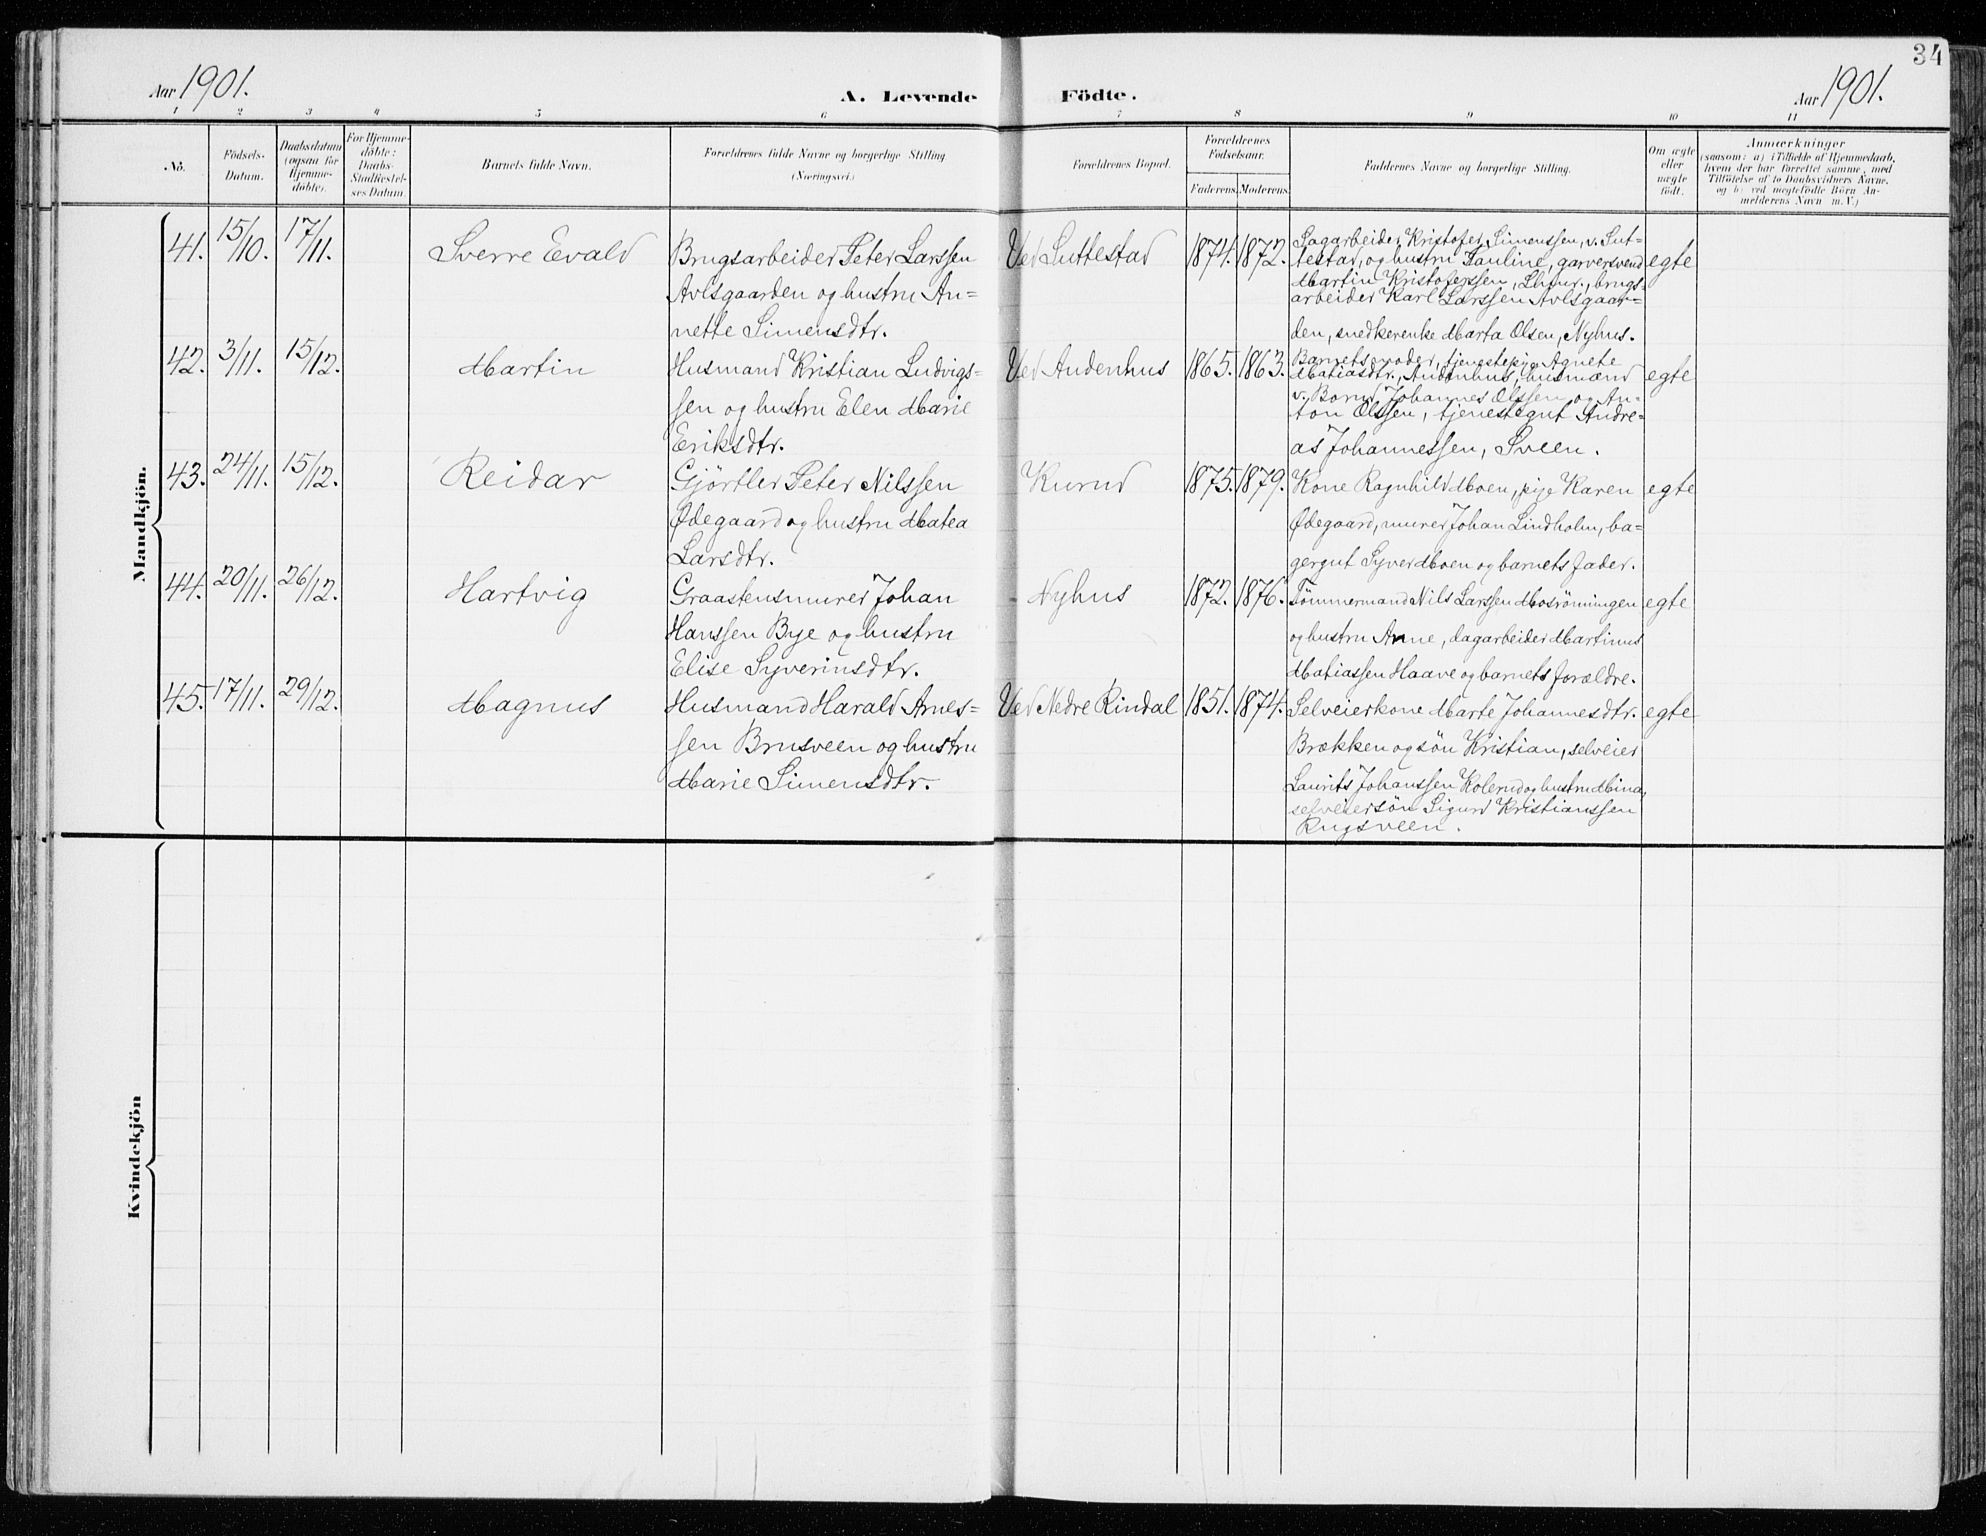 34
Aar 1901.
A. Levende Födte.
Aar 1901.
1 2 3 4 5 6 7 8 9 10 11
No.
Födsels-
Datum.
Daabsdatum
(ogsaa for
Hjemme-
döbte).
For Hjemme-
döbte:
Daabs-
Stadfæstel-
ses Datum.
Barnets fulde Navn.
Forældrenes fulde Navne og borgerlige Stilling
(Næringsvei.)
Forældrenes Bopæl.
Forældrenes
Födselsaar.
Faderens. Moderens.
Faddernes Navne og borgerlige Stilling.
Om ægte
eller
uægte
født.
Anmærkninger
(saasom: a) i Tilfælde af Hjemmedaab,
hvem der har forrettet samme, med
Tilföielse af to Daabsvidners Navne,
og b) ved uegtefödte Börn An-
melderens Navn m. V.)
Mandkjön.
41. 15/10. 17/11. Sverre Evald
Brugsarbeider Peter Larssen
Avlsgaarden og hustru An=
nette Simensdtr.
Ved Suttestad 1874. 1872.
Sagarbeider Kristofer Simenssen, v. Sut=
testad, og hustru Pauline, garversvend
Martin Kristoferssen, Lhmr., brugs-
arbeider Karl Larssen Avlsgaar=
den, snedkerenke Marta Olsen, Nyhus.
egte
42. 3/11. 15/12. Martin
Husmand Kristian Ludvigs=
sen og hustru Elen Marie
Eriksdtr.
Ved Andenhus 1865. 1863.
Barnets moder, tjenestepige Agnete
Matiasdtr., Andenhus, husmænd
v. Borud, Johannes Olssen og An=
ton Olssen, tjenestegut Andre=
as Johannessen, Sveen.
egte
43. 24/11. 15/12. Reidar
Gjørtler Peter Nilssen
Ødegaard og hustru Matea
Larsdtr.
Kurud 1875. 1879.
Kone Ragnhild Moen, pige Karen
Ødegaard, murer Johan Lindholm, ba=
gergut Syver Moen og barnets fader.
egte
44. 20/11. 26/12. Hartvig
Graastensmurer Johan
Hanssen Bye og hustru
Elise Syverinsdtr.
Nyhus 1872. 1876.
Tømmermand Nils Larssen Mosrönningen
og hustru Anne, dagarbeider Martinus
Matiassen Haave og barnets forældre.
egte
45. 17/11. 29/12. Magnus
Husmand Harald Arnes=
sen Brusveen og hustru
Marie Simensdtr.
Ved Nedre Rindal 1851. 1874.
Selveierkone Marte Johannesdtr.
Brækken og søn Kristian, selveier
Laurits Johanssen Kolerud og hustru Mina,
selveiersön Sigurd Kristianssen
Rugsveen.
egte
Kvindekjön